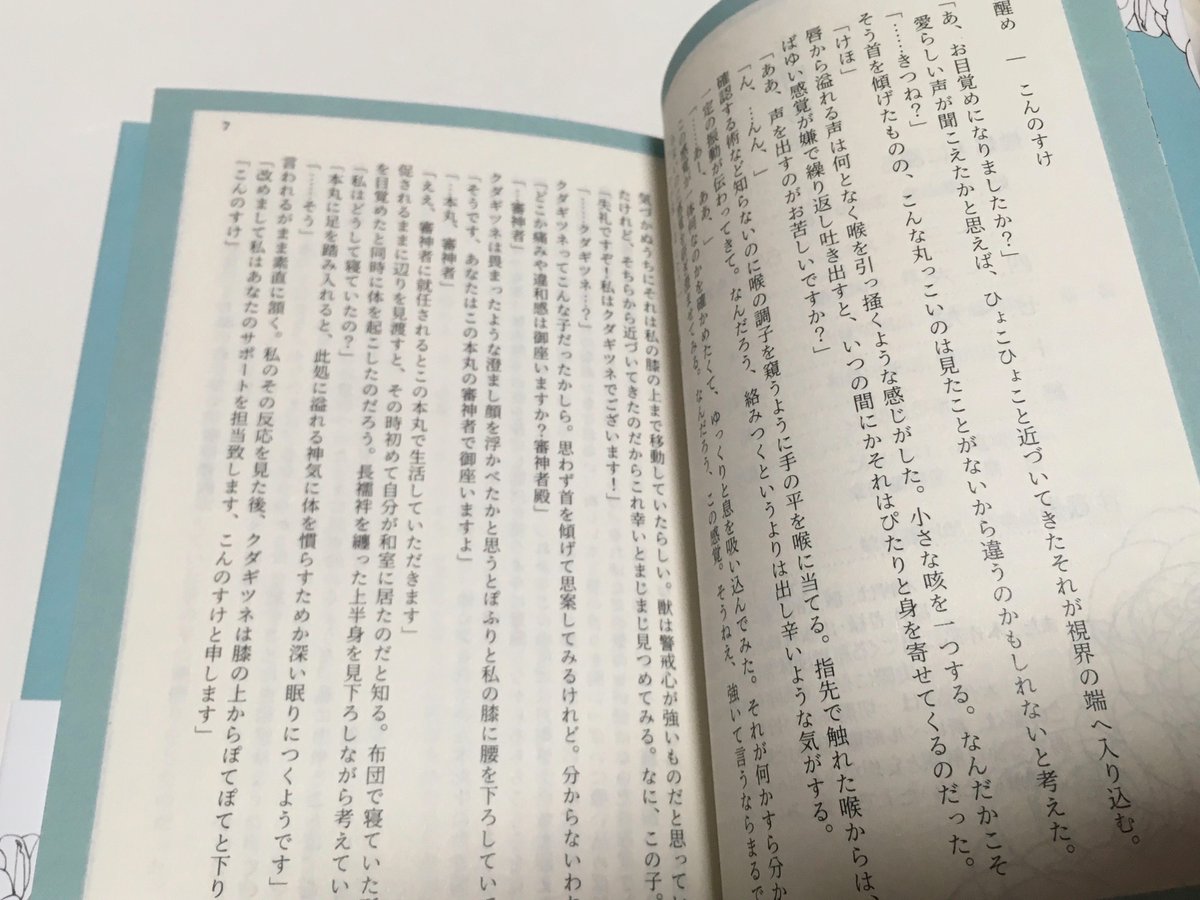 醒め ― こんのすけ
「あ、お目覚めになりましたか？」
愛らしい声が聞こえたかと思えば、ひょこひょこと近づいてきたそれが視界の端へ入り込む。
「……きつね？」
そう首を傾げたものの、こんな丸っこいのは見たことがないから違うのかもしれないと考えた。
「けほ」
唇から溢れる声は何となく喉を引っ掻くような感じがした。小さな咳を一つする。なんだかこそ
ばゆい感覚が嫌で繰り返し吐き出すと、いつの間にかそれはぴたりと身を寄せてくるのだった。
「ああ、声を出すのがお苦しいですか？」
「ん、…んん、」
確認する術など知らないのに喉の調子を窺うように手の平を喉に当てる。指先で触れた喉からは、
一定の振動が伝わってきて。なんだろう、絡みつくというよりは出し辛いような気がする。
「……あー、ああ、」
ゆっくりと息を吸い込んでみた。それが何かすら分か
なんだろう、この感覚。そうねえ、強いて言うならまるで
気づかぬうちにそれは私の膝の上まで移動していたらしい。獣は警戒心が強いものだと思ってい
たけれど、そちらから近づいてきたのだからこれ幸いとまじまじ見つめてみる。なに、この子。
「失礼ですぞ！私はクダギツネでございます！」
「……クダギツネ…？」
クダギツネってこんな子だったかしら。思わず首を傾げて思案してみるけれど。分からないわ
「どこか痛みや違和感は御座いますか？審神者殿」
「…審神者」
クダギツネは畏まったような澄まし顔を浮かべたかと思うとぽふりと私の膝に腰を下ろしてい
「そうです、あなたはこの本丸の審神者で御座いますよ」
「…本丸、審神者」
「ええ、審神者に就任されるとこの本丸で生活していただきます」
促されるままに辺りを見渡すと、その時初めて自分が和室に居たのだと知る。布団で寝ていた
を目覚めたと同時に体を起こしたのだろう。長襦袢を纏った上半身を見下ろしながら考えてい
「私はどうして寝ていたの？」
「本丸に足を踏み入れると、此処に溢れる神気に体を慣らすためか深い眠りにつくようです」
「……そう」
言われるがまま素直に頷く。私のその反応を見た後、クダギツネは膝の上からぽてぽてと下り
「改めまして私はあなたのサポートを担当致します、こんのすけと申します」
「こんのすけ」
7